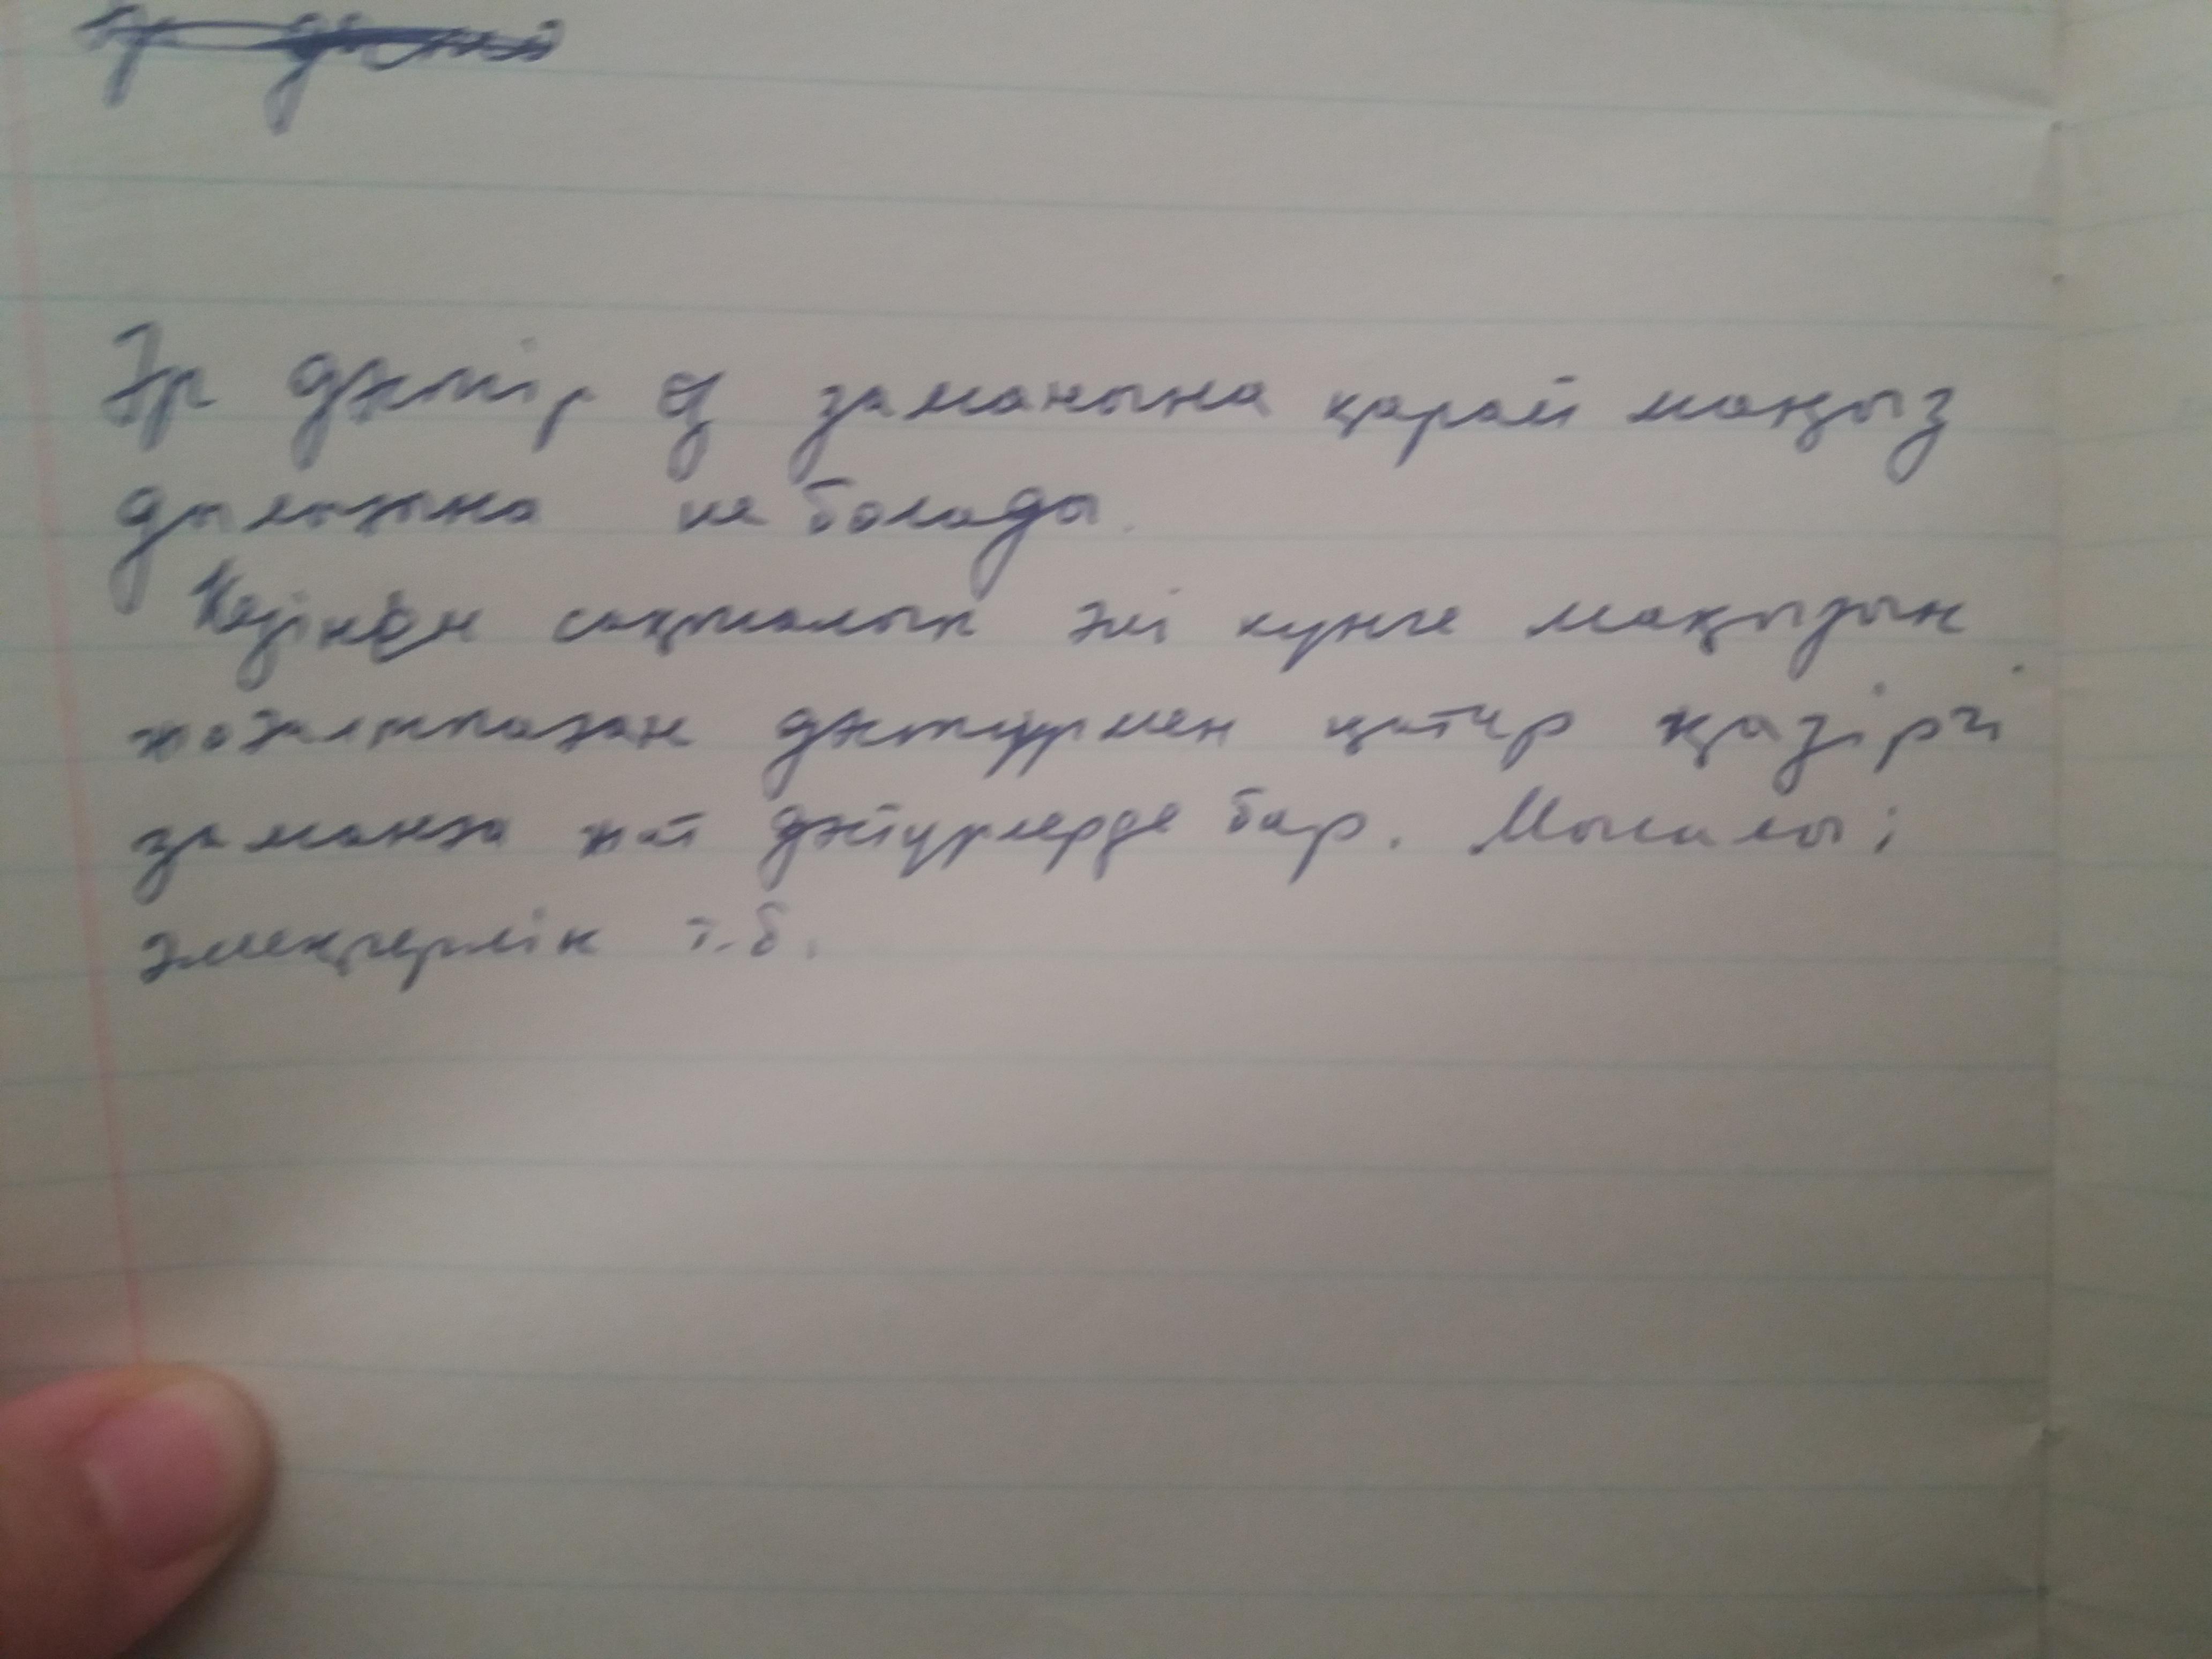 Әр дәстір өз заманына қарай маңыз
дылығына ие болады.
Кезінен сақталып әлі кунге маңызын
жоғалтпаған дәстүрмен қатар қазіргі
заманға жат дәстүрлерде бар. Мысалы:
әмеңгерлік т.б.